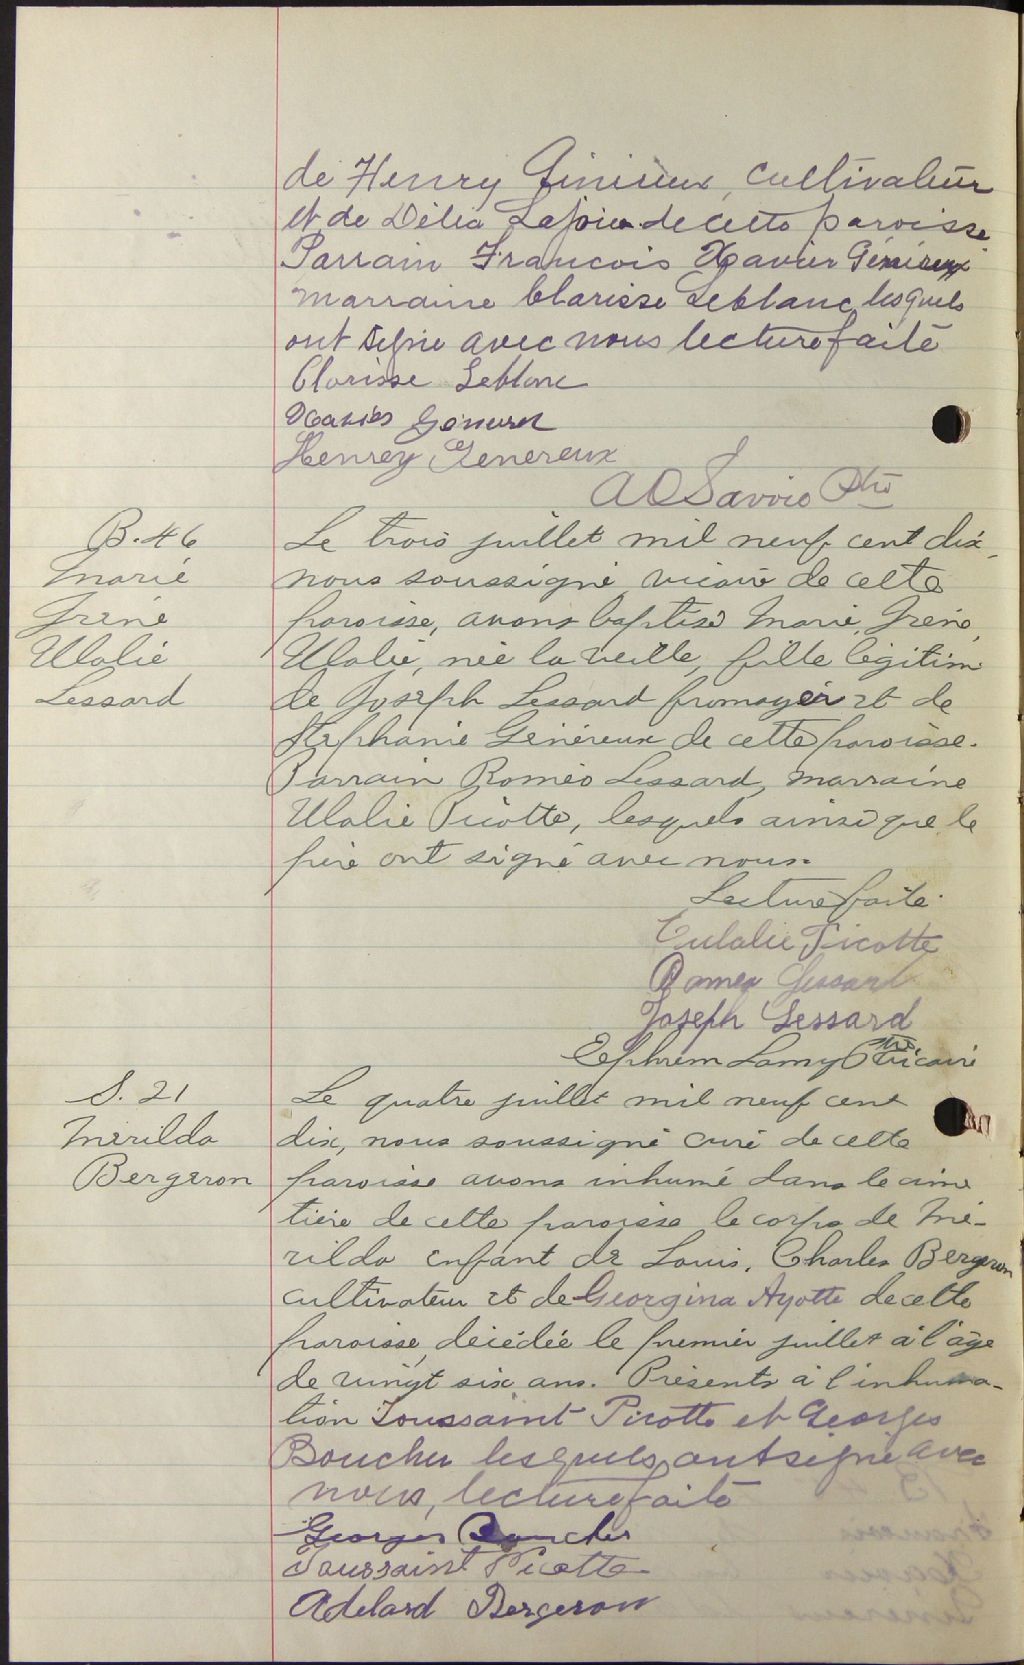 de Henry Génireux, cultivateur
et de Délia Lajoie de cette paroisse
Parrain Francois Xavier Généreux
marraine Clarisse Leblanc, lesquels
ont signé avec nous lecture faite
Clarisse Leblanc
Xavier Généreux
Henrey Genereux
A O Savoie Ptre
B. 46
Marie
Irene
Ulalie
Lessard
Le trois juillet mil neuf cent dix,
nous soussigné, vicaire de cette
paroisse, avons baptisé Marie, Irene,
Ulalie, née la veille, fille légitime
de Joseph Lessard fromager et de
Stephanie Généreux de cette paroisse.
Parrain Roméo Lessard, marraine
Ulalie Picotte, lesquels ainsi que le
père ont signé avec nous.
Lecture faite.
Eulalie Picotte
Romeo Lessard
Joseph Lessard
Ephrem Lamy Ptre vicaire
S. 21
Mérilda
Bergeron
Le quatre juillet mil neuf cent
dix, nous soussigné curé de cette
paroisse avons inhumé dans le cime
tière de cette paroisse le corps de Mé-
rilda enfant de Louis, Charles Bergeron
cultivateur et de Georgina Ayotte de cette
paroisse, décédée le premier juillet à l'âge
de vingt six ans. Présents à l'inhuma-
tion Toussaint Picotte et Georges
Boucher lesquels ont signé avec
nous, lecture faite
Georges Boucher
Toussaint Picotte
Adelard Bergeron